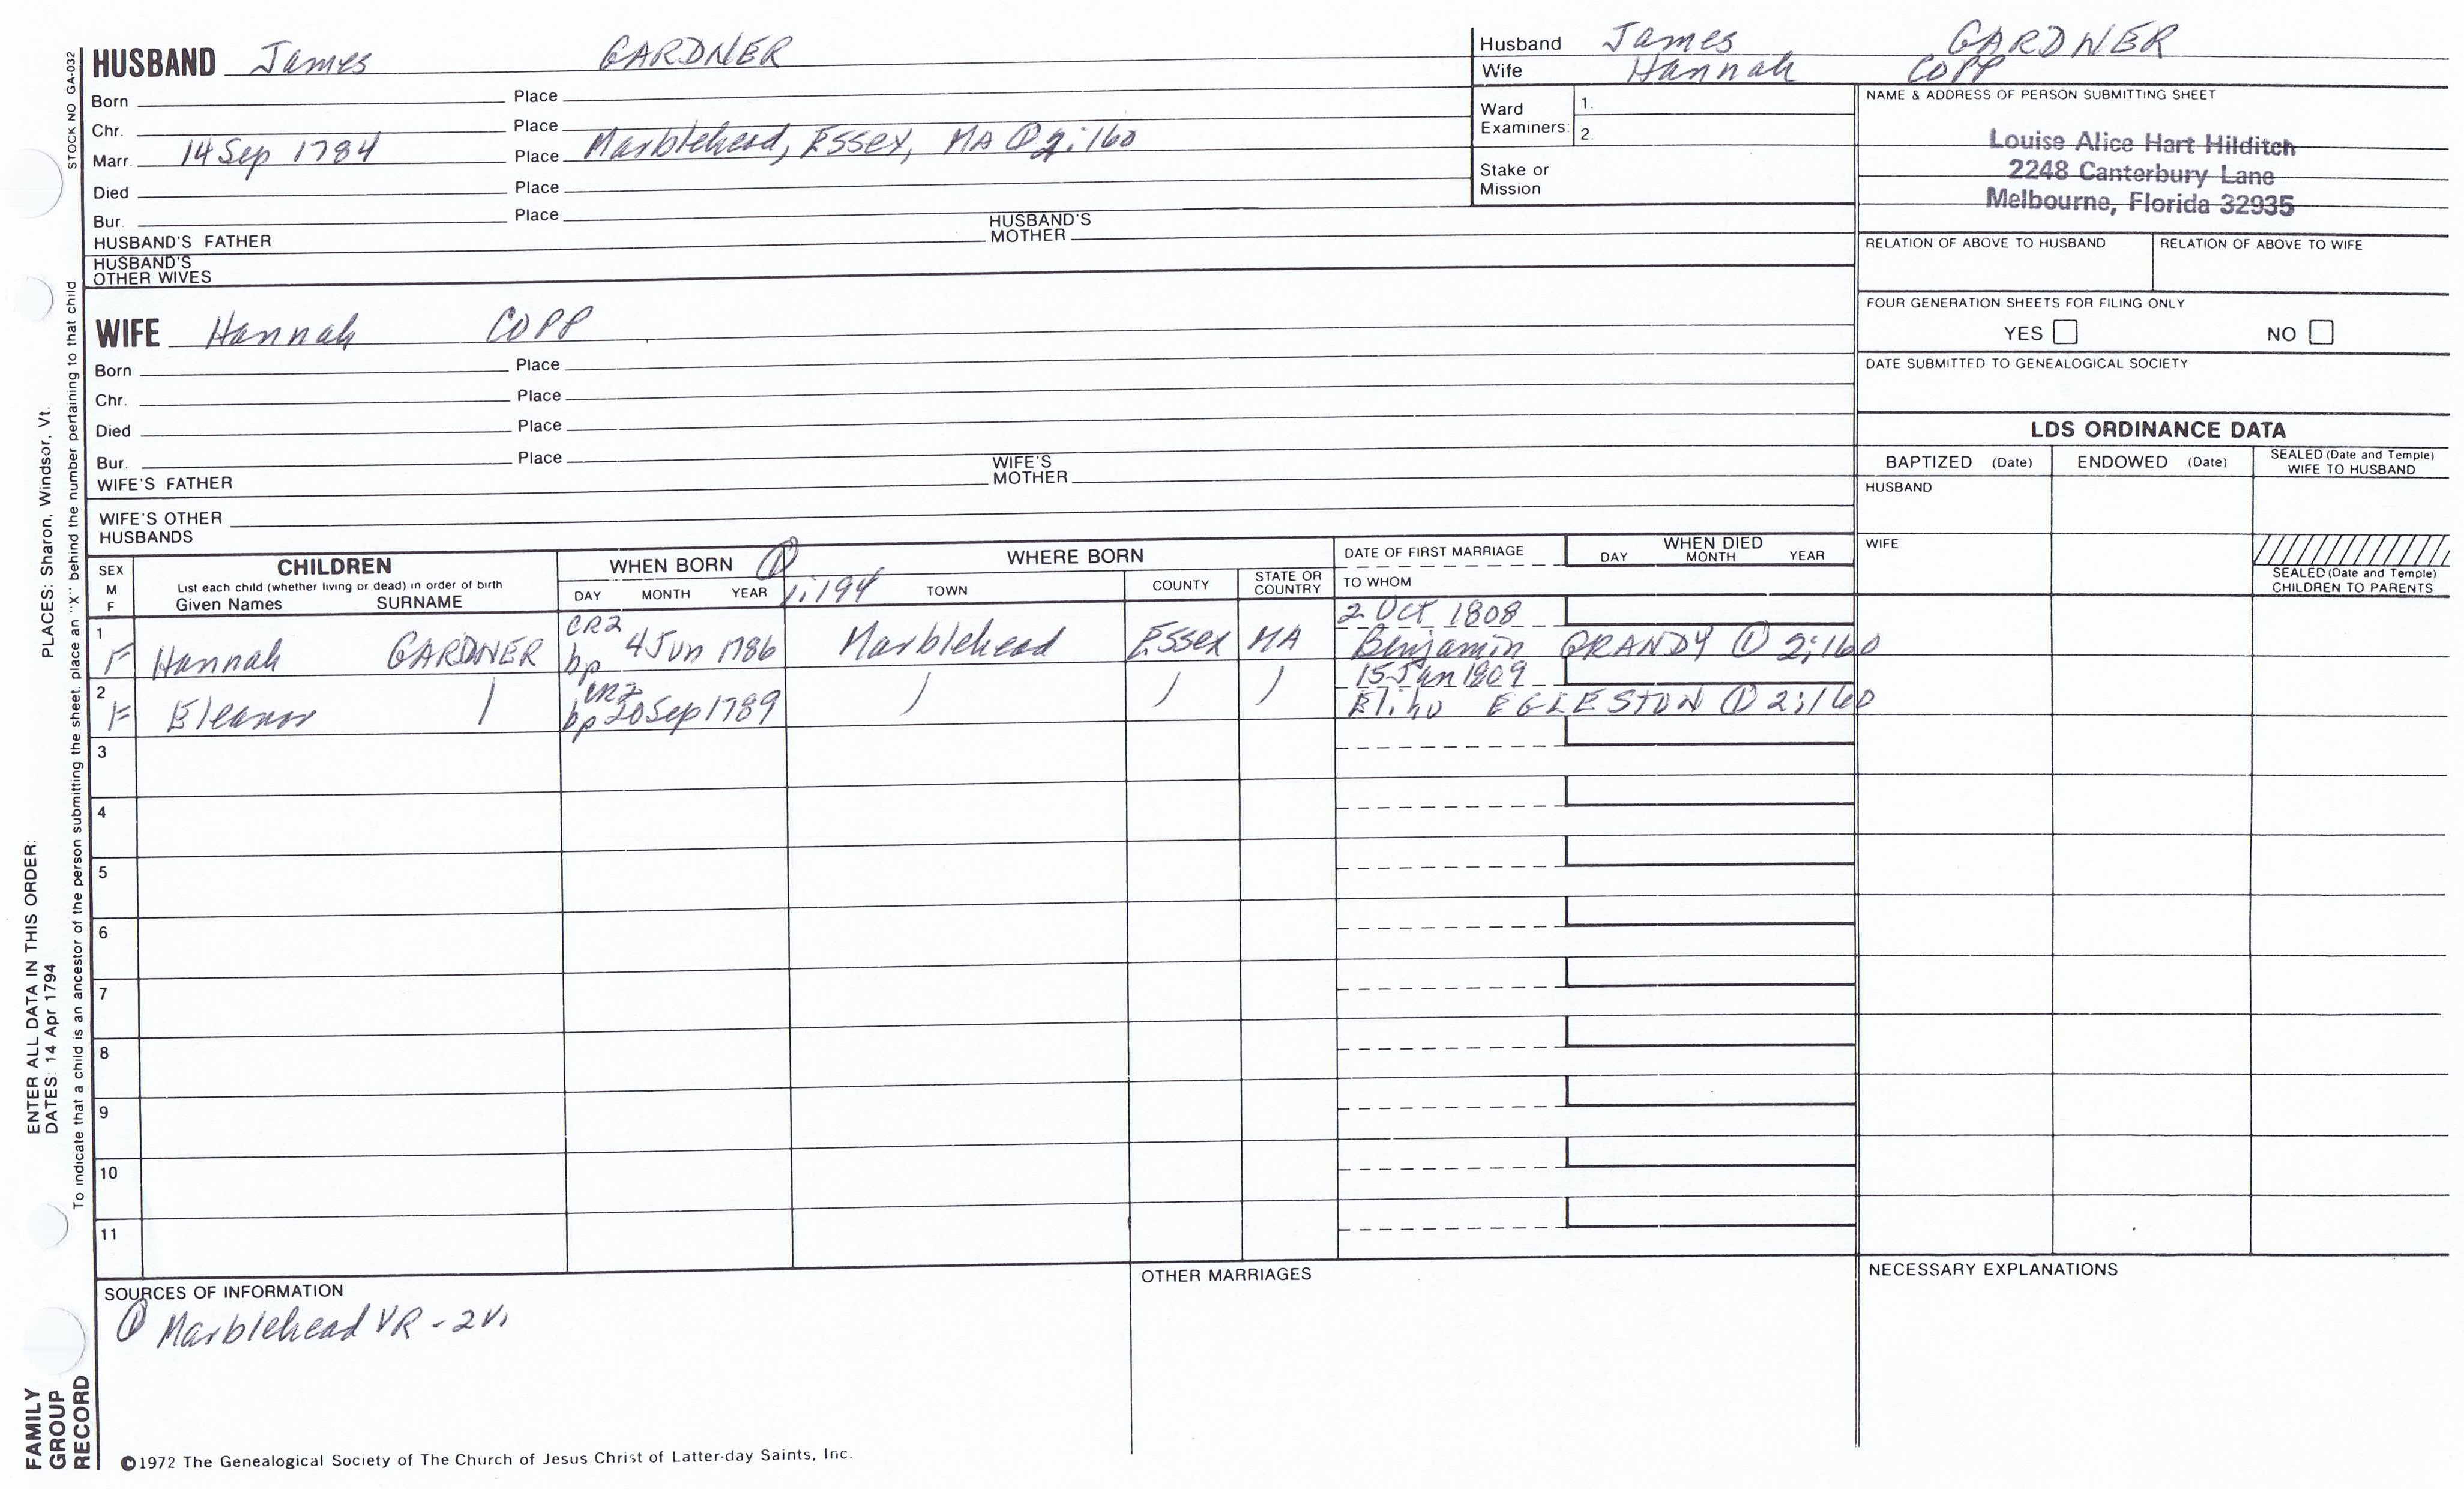 STOCK NO GA-032
HUSBAND James GARDNER
Born Place
Chr. Place
Marr. 14 Sep 1784 Place Marblehead, Essex, MA ① 2:160
Died Place
Bur. Place
HUSBAND'S FATHER HUSBAND'S MOTHER
HUSBAND'S OTHER WIVES
Husband James GARDNER
Wife Hannah COPP
Ward Examiners: 1.
2.
Stake or Mission
NAME & ADDRESS OF PERSON SUBMITTING SHEET
Louise Alice Hart Hilditch
2248 Canterbury Lane
Melbourne, Florida 32935
RELATION OF ABOVE TO HUSBAND RELATION OF ABOVE TO WIFE
FOUR GENERATION SHEETS FOR FILING ONLY
YES NO
DATE SUBMITTED TO GENEALOGICAL SOCIETY
WIFE Hannah COPP
Born Place
Chr. Place
Died Place
Bur. Place
WIFE'S FATHER WIFE'S MOTHER
WIFE'S OTHER HUSBANDS
LDS ORDINANCE DATA
BAPTIZED (Date) ENDOWED (Date) SEALED (Date and Temple) WIFE TO HUSBAND
HUSBAND
WIFE
SEALED (Date and Temple) CHILDREN TO PARENTS
SEX M F
CHILDREN
List each child (whether living or dead) in order of birth
Given Names SURNAME
WHEN BORN ① 1:194
DAY MONTH YEAR
WHERE BORN
TOWN COUNTY STATE OR COUNTRY
DATE OF FIRST MARRIAGE
TO WHOM
WHEN DIED
DAY MONTH YEAR
CR2 2 Oct 1808
1 F Hannah GARDNER bp 4 Jun 1786 Marblehead Essex MA Benjamin GRANDY ① 2:160
CR2 15 Jan 1809
2 F Eleanor bp 20 Sep 1789 Elihu EGLESTON ① 2:160
3
4
5
6
7
8
9
10
11
SOURCES OF INFORMATION
① Marblehead VR - 2v.
OTHER MARRIAGES
NECESSARY EXPLANATIONS
©1972 The Genealogical Society of The Church of Jesus Christ of Latter-day Saints, Inc.
FAMILY GROUP RECORD
ENTER ALL DATA IN THIS ORDER:
DATES: 14 Apr 1794
PLACES: Sharon, Windsor, Vt.
To indicate that a child is an ancestor of the person submitting the sheet, place an "X" behind the number pertaining to that child